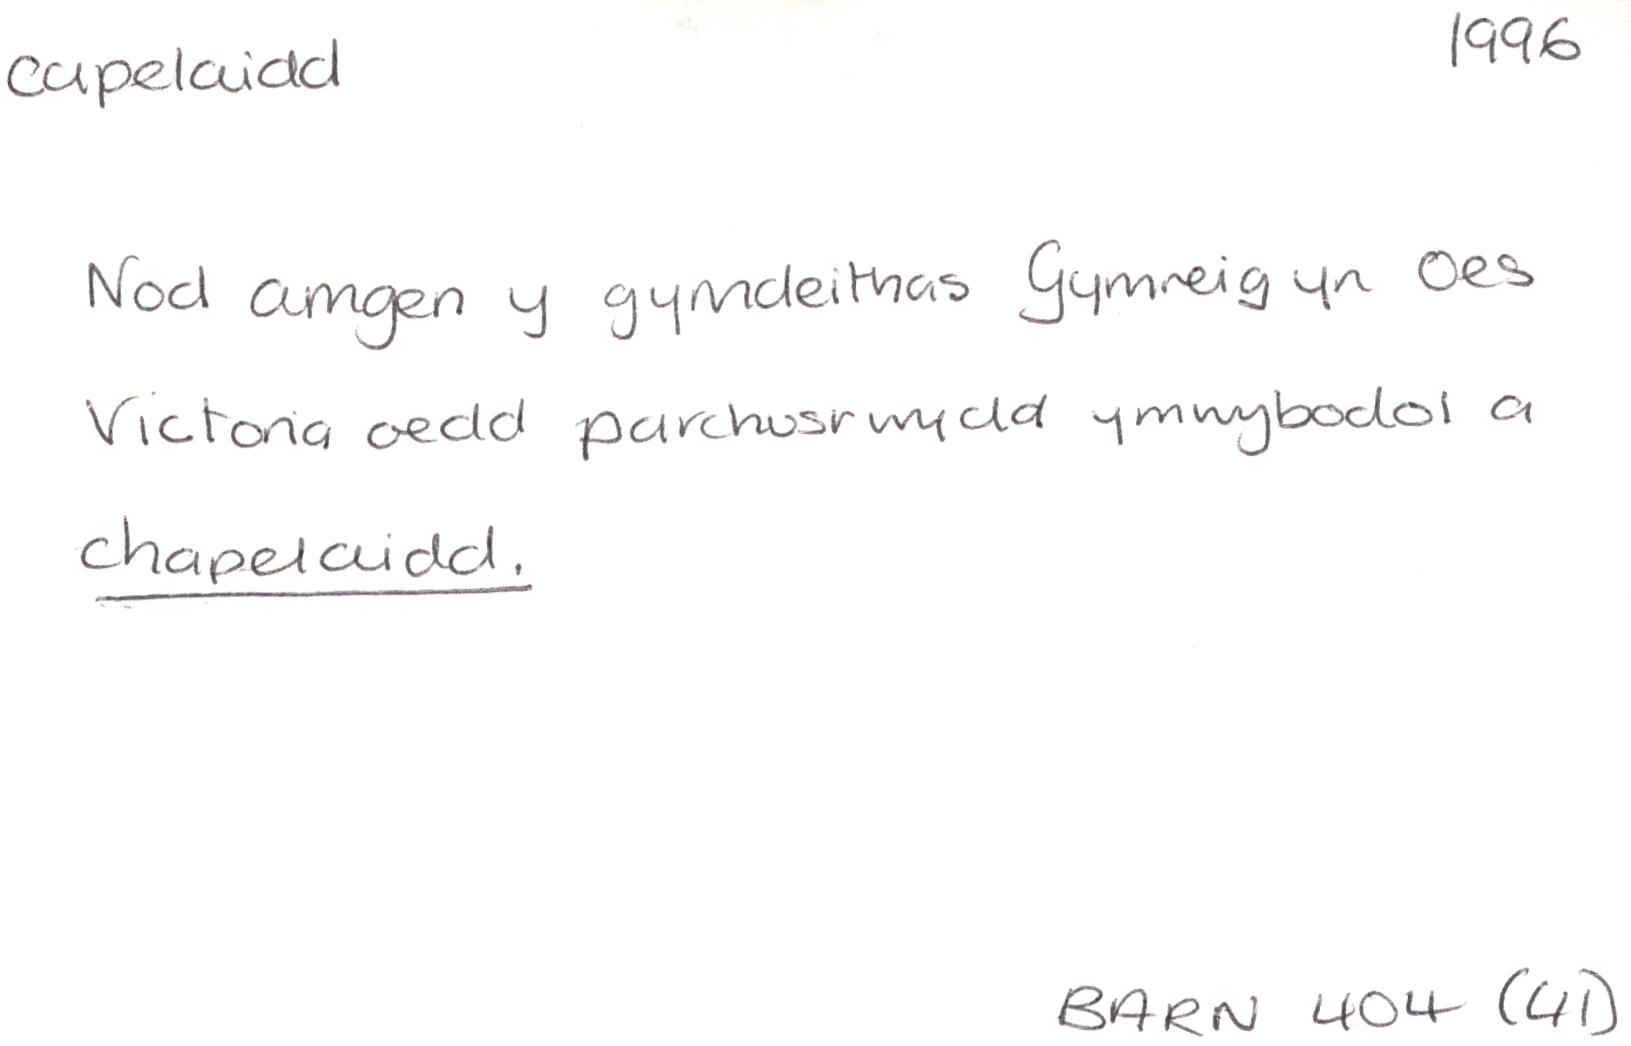 capelaidd 1996
Nod amgen y gymdeithas Gymreig yn Oes
Victoria oedd parchusrwydd ymwybodol a
chapelaidd.
BARN 404 (41)